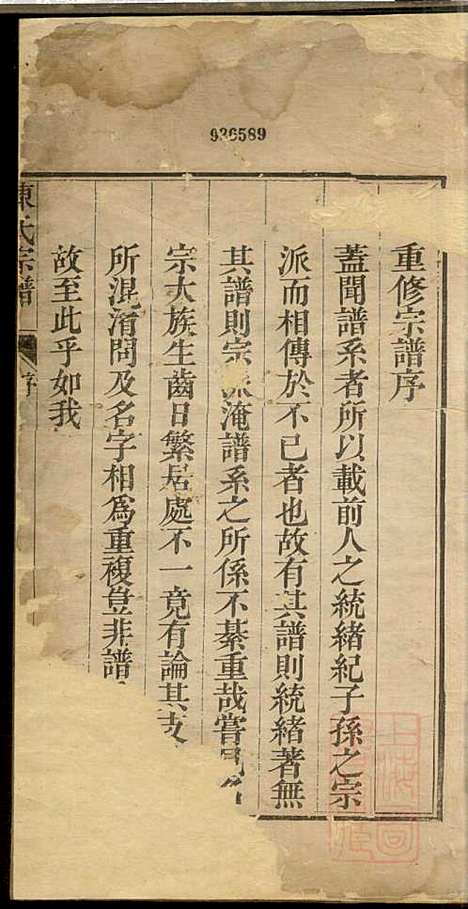 936589
重修宗譜序
蓋聞譜系者所以載前人之統緒紀子孫之宗
派而相傳於不已者也故有其譜則統緒著無
其譜則宗派淹譜系之所係不綦重哉嘗見
宗大族生齒日繁居處不一竟有論其支
所混淆問及名字相為重複豈非譜
故至此乎如我
陳氏宗譜
序